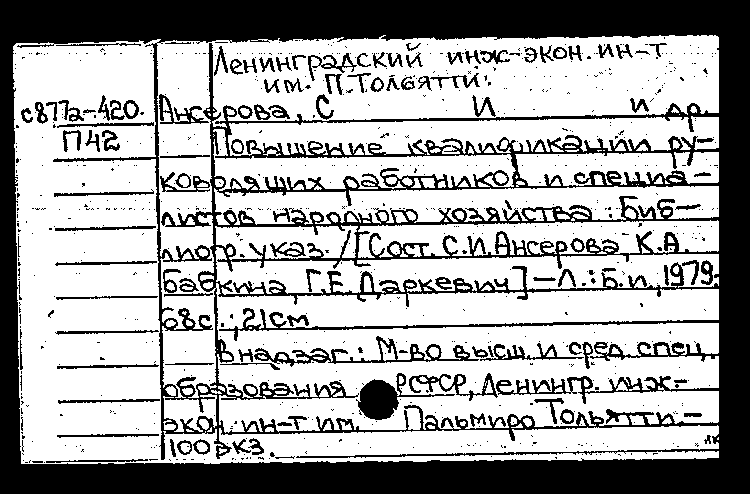 Ленинградский инж-экон. ин-т
им. П.Тольятти.
с877а-420. Ансерова, С И и др.
П42 Повышение квалификации ру-
ководящих работников и специа-
листов народного хозяйства : Биб-
лиогр. указ. /[Сост. С.И.Ансерова, К.А.
Бабкина, Г.Е.Даркевич] -Л.: Б.и., 1979.
68с.; 21см
В надзаг.: М-во высш. и сред. спец.
образования РСФСР, Ленингр. инж-
экон. ин-т им. Пальмиро Тольятти. -
100экз.